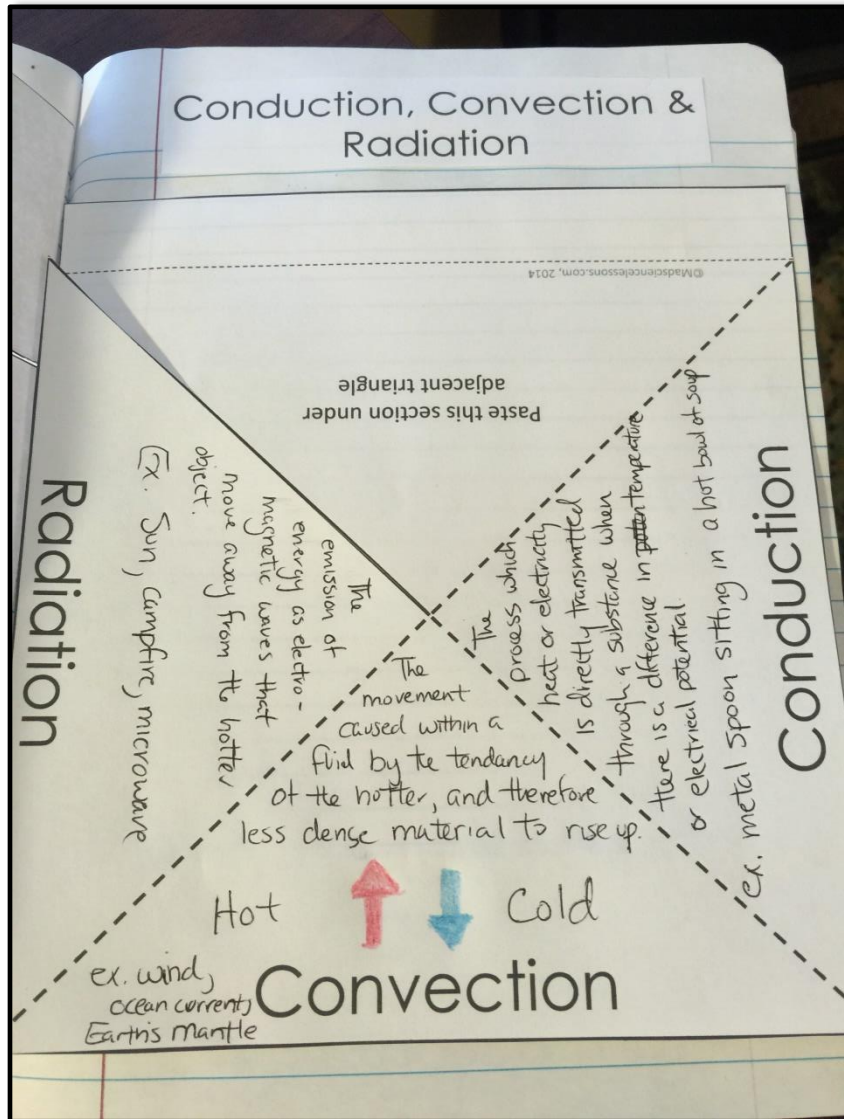 Conduction, Convection &
Radiation
©Madsciencelessons.com, 2014
Paste this section under
adjacent triangle
Radiation
The
emission of
energy as electro-
magnetic waves that
move away from the hotter
object.
Ex. Sun, campfire, microwave
The
process which
heat or electricity
is directly transmitted
through a substance when
there is a difference in temperature
or electrical potential.
ex. metal spoon sitting in a hot bowl of soup
Conduction
The
movement
caused within a
fluid by the tendancy
of the hotter, and therefore
less dense material to rise up.
Hot Cold
ex. wind,
ocean current,
Earth's Mantle
Convection